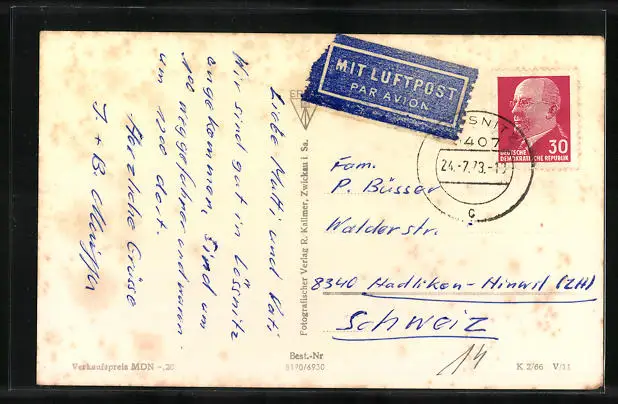 Liebe Mutti und Vati
Wir sind gut in Lössnitz
angekommen, sind um
weggefahren und waren
um 1200 dort.
Herzliche Grüsse
J. + B.
MIT LUFTPOST
PAR AVION
LÖSNITZ
9407
24.-7.73.-1
c
30
DEUTSCHE
DEMOKRATISCHE REPUBLIK
Fam.
P. Büsser
Walderstr.
8340 Hadlikon-Hinwil (ZH)
Schweiz
14
Fotografischer Verlag R. Kallmer, Zwickau i. Sa.
Verkaufspreis MDN -,20
Best.-Nr
8190/6930
K 2/66 V/11